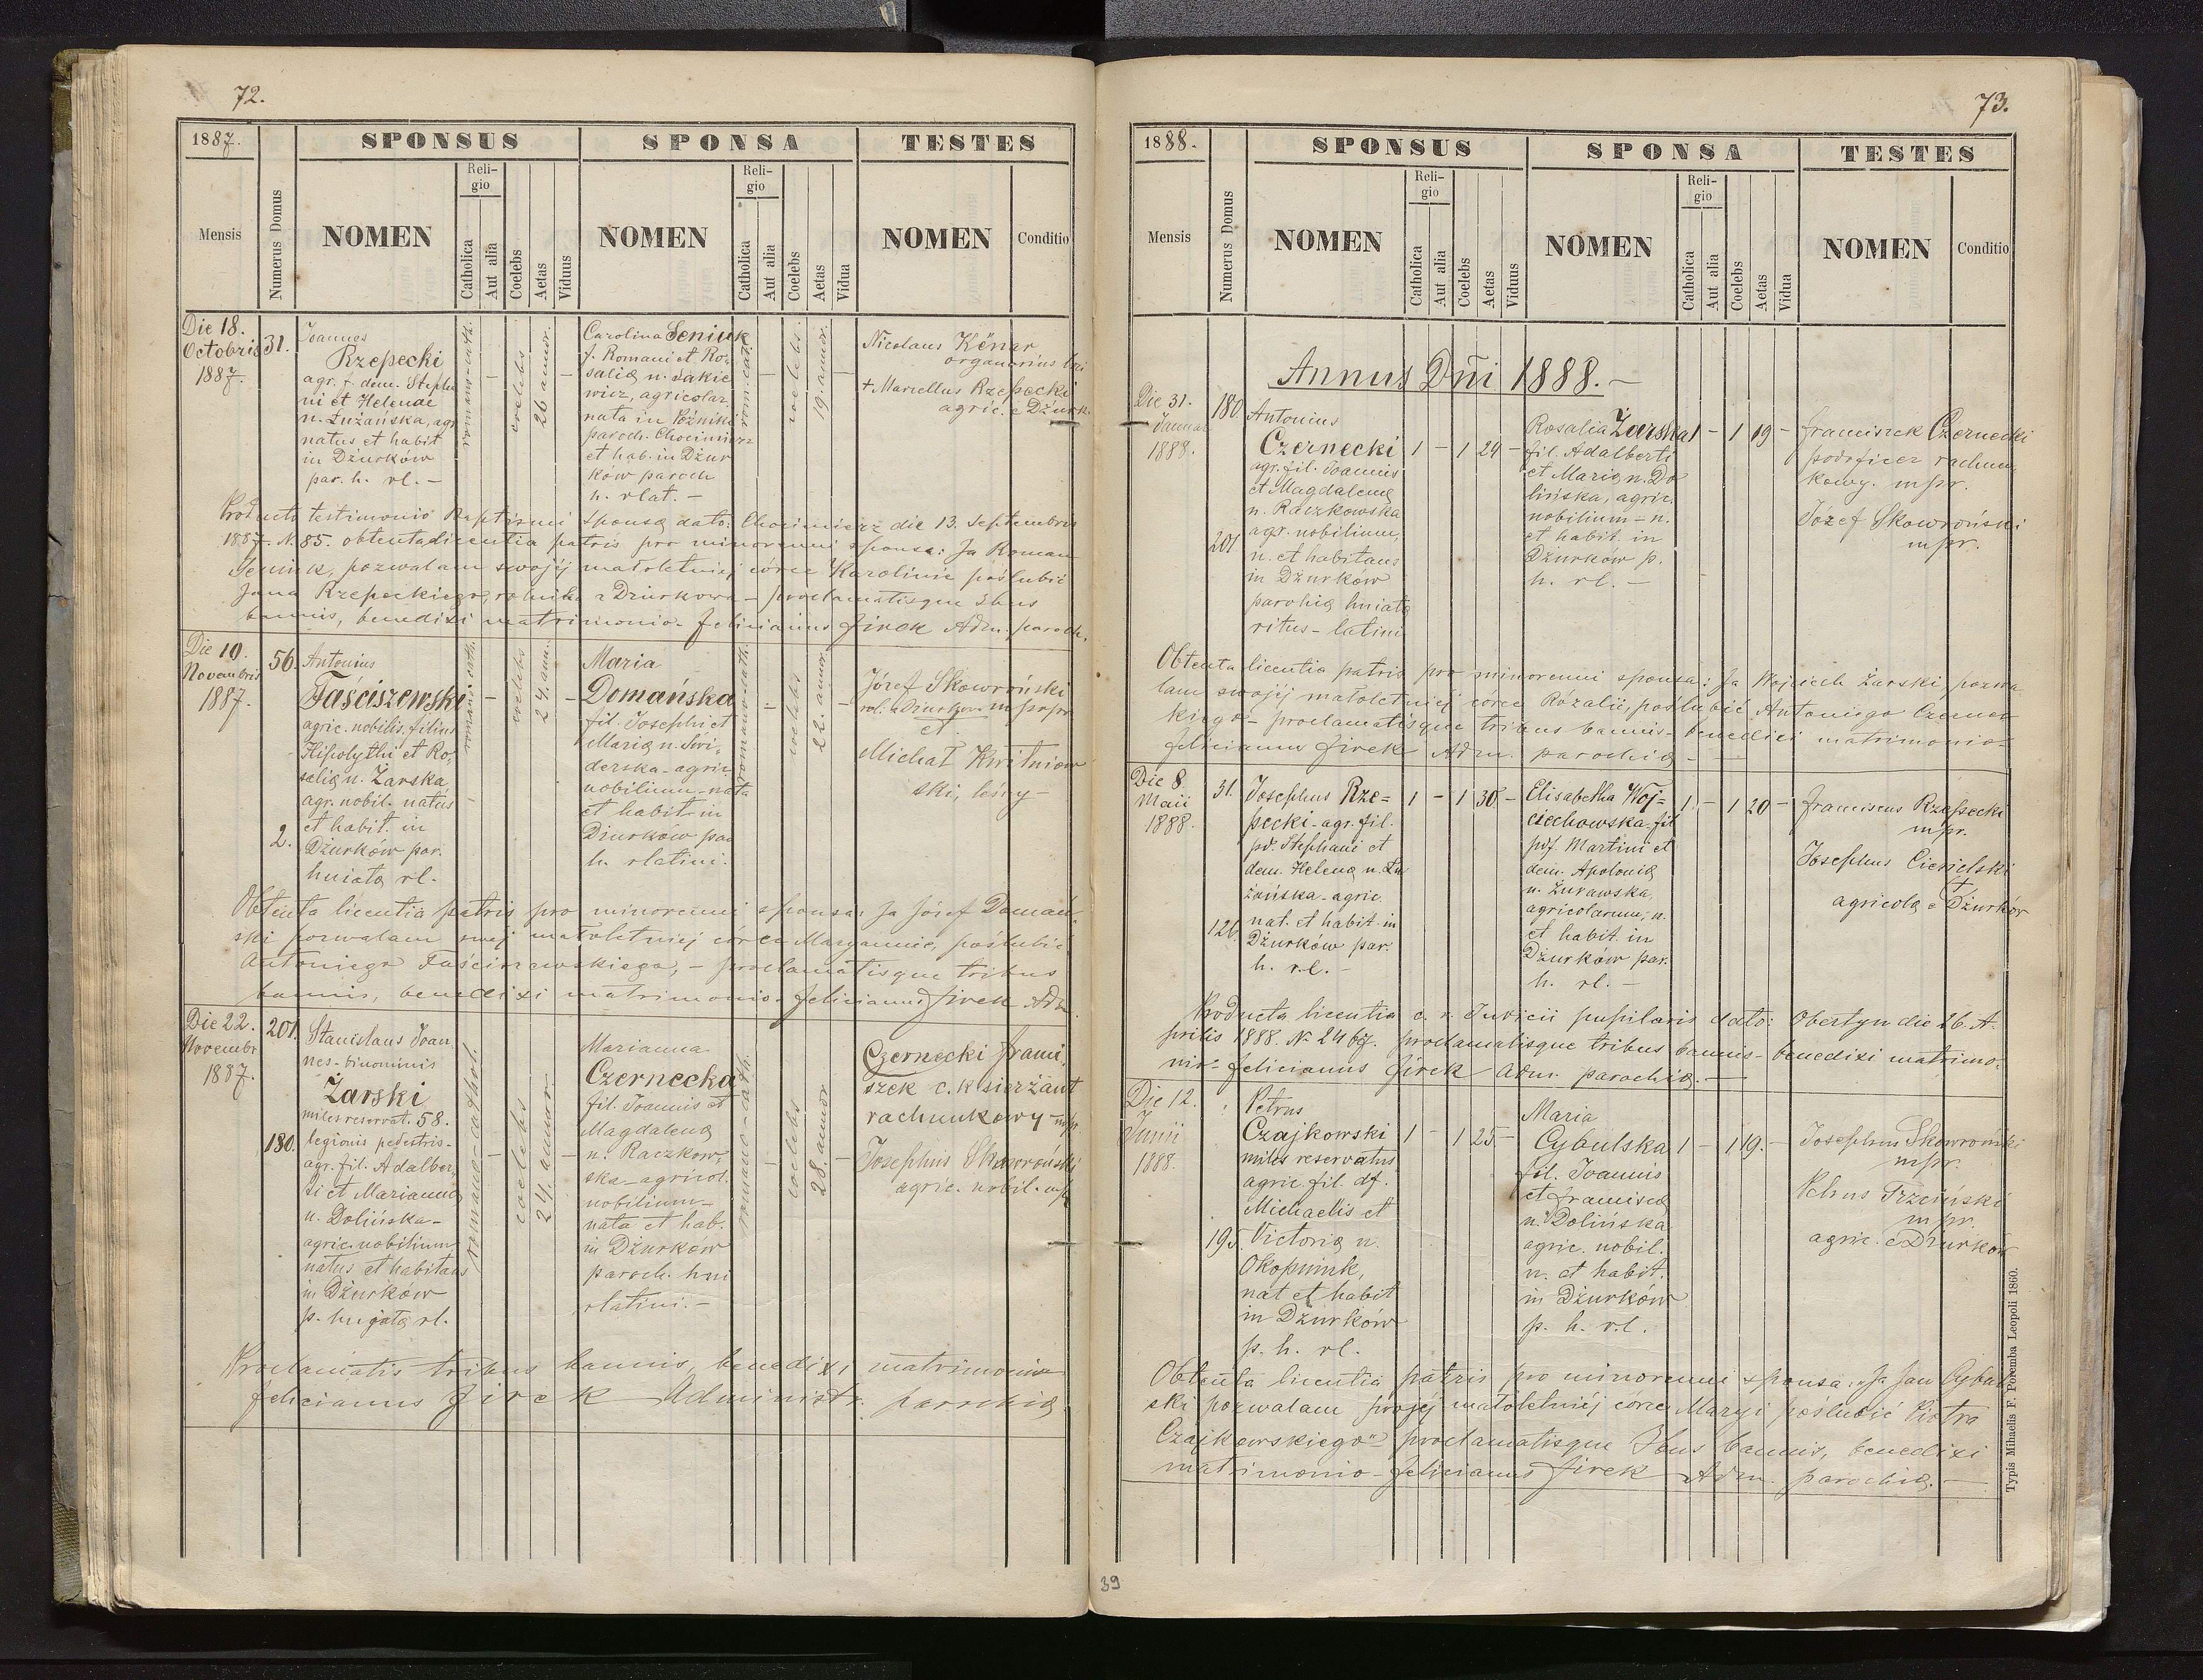 72.
1887.
SPONSUS
SPONSA
TESTES
Mensis
Numerus Domus
NOMEN
Reli-
gio
Catholica
Aut alia
Coelebs
Aetas
Viduus
NOMEN
Reli-
gio
Catholica
Aut alia
Coelebs
Aetas
Vidua
NOMEN
Conditio
Die 18.
Octobris
1887.
31.
Joannes
Rzepecki
agr. f. dem. Stepha
ni et Helenae
n. Łużańska, agr
natus et habit
in Dżurków
par. h. rl. -
romano-cath.
-
coelebs
26 annor.
-
Carolina Seniuk
f. Romani et Ro-
salia n. Sakie
wicz, agricolar
nata in Poźniki
paroch. Chocimierz
et hab. in Dżur
ków paroch
h. rlat. -
rom. cat.
-
coelebs
19. annor.
-
Nicolaus Kënar
organarius
+ Marcellus Rzepecki
agric. e Dżurk.
Producto testimonio Baptismi sponsą dato: Chocimierz die 13. Septembris
1887. N. 85. obtenta licentia patris pro minorenni sponsa: Ja Roman
Seniuk, pozwalam swojéj małoletniéj córce Karolinie poślubić
Jana Rzepeckiego, rolnika z Dżurkowa - proclamatisque 3bus
bannis, benedixi matrimonio. Felicianus Jirek Adm. paroch.
Die 19.
Novembris
1887.
56.
2.
Antonius
Taściszewski
agric. nobilis. filius
Hipolythi et Ro-
salią n. Żarska
agr. nobil. natus
et habit. in
Dżurków par.
huiatą rl.
romano-cath.
-
coelebs
24. ann.
-
Maria
Domańska
fil. Josephi et
Marią n. Świ-
derska - agric
nobilium - nata
et habit in
Dżurków par
h. rlatini.
romano-cath.
-
coelebs
22. annor.
-
Józef Skowroński
rol. z Dżurkow. m propr
et
Michał Kwitniow
ski, leśny -
Obtenta licentia patris pro minorenni sponsa: Ja Józef Domań-
ski pozwalam swej małoletniej córce Maryannie, poślubić
Antoniego Taściszewskiego, - proclamatisque tribus
bannis, benedixi matrimonio. Felicianus Jirek Adm
Die 22.
Novembr
1887.
201.
180.
Stanislaus Joan
nes - binominis
Żarski
miles reservat. 58.
legionis pedestris -
agr. fil. Adalber,
ti et Marianną
n. Dolińska -
agric. nobilium
natus et habitans
in Dżurków
p. huiatą rl.
romano-cathol.
-
coelebs
24. annor
-
Marianna
Czernecka
fil. Joannis et
Magdaleną
n. Raczkow-
ska - agricol.
nobilium -
nata et hab.
in Dżurków
paroch. hui
rlatini. -
romano-cath.
-
coelebs
28. annor
-
Czernecki Franci,
szek c. k sierżant
rachunkowy - mpr
Josephus Skowroński
agric. nobil. mp
Proclamatis tribus bannis, benedixi matrimonio
Felicianus Jirek Administr. parochią
73.
1888.
SPONSUS
SPONSA
TESTES
Mensis
Numerus Domus
NOMEN
Reli-
gio
Catholica
Aut alia
Coelebs
Aetas
Viduus
NOMEN
Reli-
gio
Catholica
Aut alia
Coelebs
Aetas
Vidua
NOMEN
Conditio
Annus Dñi 1888. -
Die 31.
Januar
1888.
180.
201
Antonius
Czernecki
agr. fil. Joannis
et Magdaleną
n. Raczkowska
agr. nobilium,
n. et habitans
in Dżurkow
parohią huiatą
ritus - latini
1 - 1 24 -
Rosalia Żarska
fil. Adalberti
et Marią n. Do
lińska, agric.
nobilium - n.
et habit. in
Dżurków p.
h. rl. -
1 - 1 19 -
Franciszek Czernecki
podoficer rachun-
kowy. mpr.
Józef Skowroński
mpr.
Obtenta licentia patris pro minorenni sponsa: Ja Wojciech Żarski pozwa
lam swojéj małoletniéj córce Rózalii, poślubić Antoniego Czernec
kiego - proclamatisque tribus bannis - benedixi matrimonio -
Felicianus Jirek Adm. parochią -
Die 8
Maii
1888.
31.
126.
Josephus Rze=
pecki - agr. fil.
pd. Stephani et
dem. Heleną n. Łu
żańska - agric.
nat. et habit. in
Dżurków par.
h. r.l. -
1 - 1 30 -
Elisabetha Woj=
ciechowska fil
pdf. Martini et
dem. Apolonią
n. Żurawska,
agricolarum, n.
et habit. in
Dżurków par.
h. rl. -
1 - 1 20 -
Franciscus Rzepecki
mpr.
Josephus Ciesielski
+
agricolą e Dżurków
Producta licentia c. r. Judicii pupilaris dato: Obertyn die 26. A-
prilis 1888. No 2467. proclamatisque tribus bannis - benedixi matrimo-
nio - Felicianus Jirek Adm. parochią. -
Die 12.
Junii
1888.
195.
Petrus
Czajkowski
miles reservatus
agric. fil. df.
Michaelis et
Victorią n.
Okopniuk,
nat et habit
in Dżurków
p. h. rl.
1 - 1 25 -
Maria
Cybulska
fil. Joannis
et Franciscą
n. Dolińska
agric. nobil.
n. et habit.
in Dżurków
p. h. r.l.
1 - 1 19. -
Josephus Skowroński
mpr.
Petrus Trzciński
mpr.
agric. e Dżurków
Obtenta licentia patris pro minorenni sponsa: "Ja Jan Cybul
ski pozwalam swojéj małoletniéj córce Maryi poslubić Piotra
Czajkowskiego" proclamatisque 3bus bannis, benedixi
matrimonio - Felicianus Jirek Adm. parochią. -
Typis Mihaelis F. Poremba Leopoli 1860.
39